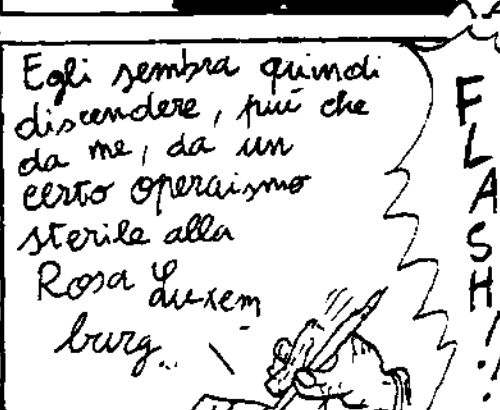 Egli sembra quindi
discendere, più che
da me, da un
certo operaismo
sterile alla
Rosa Luxem
burg...
FLASH!!